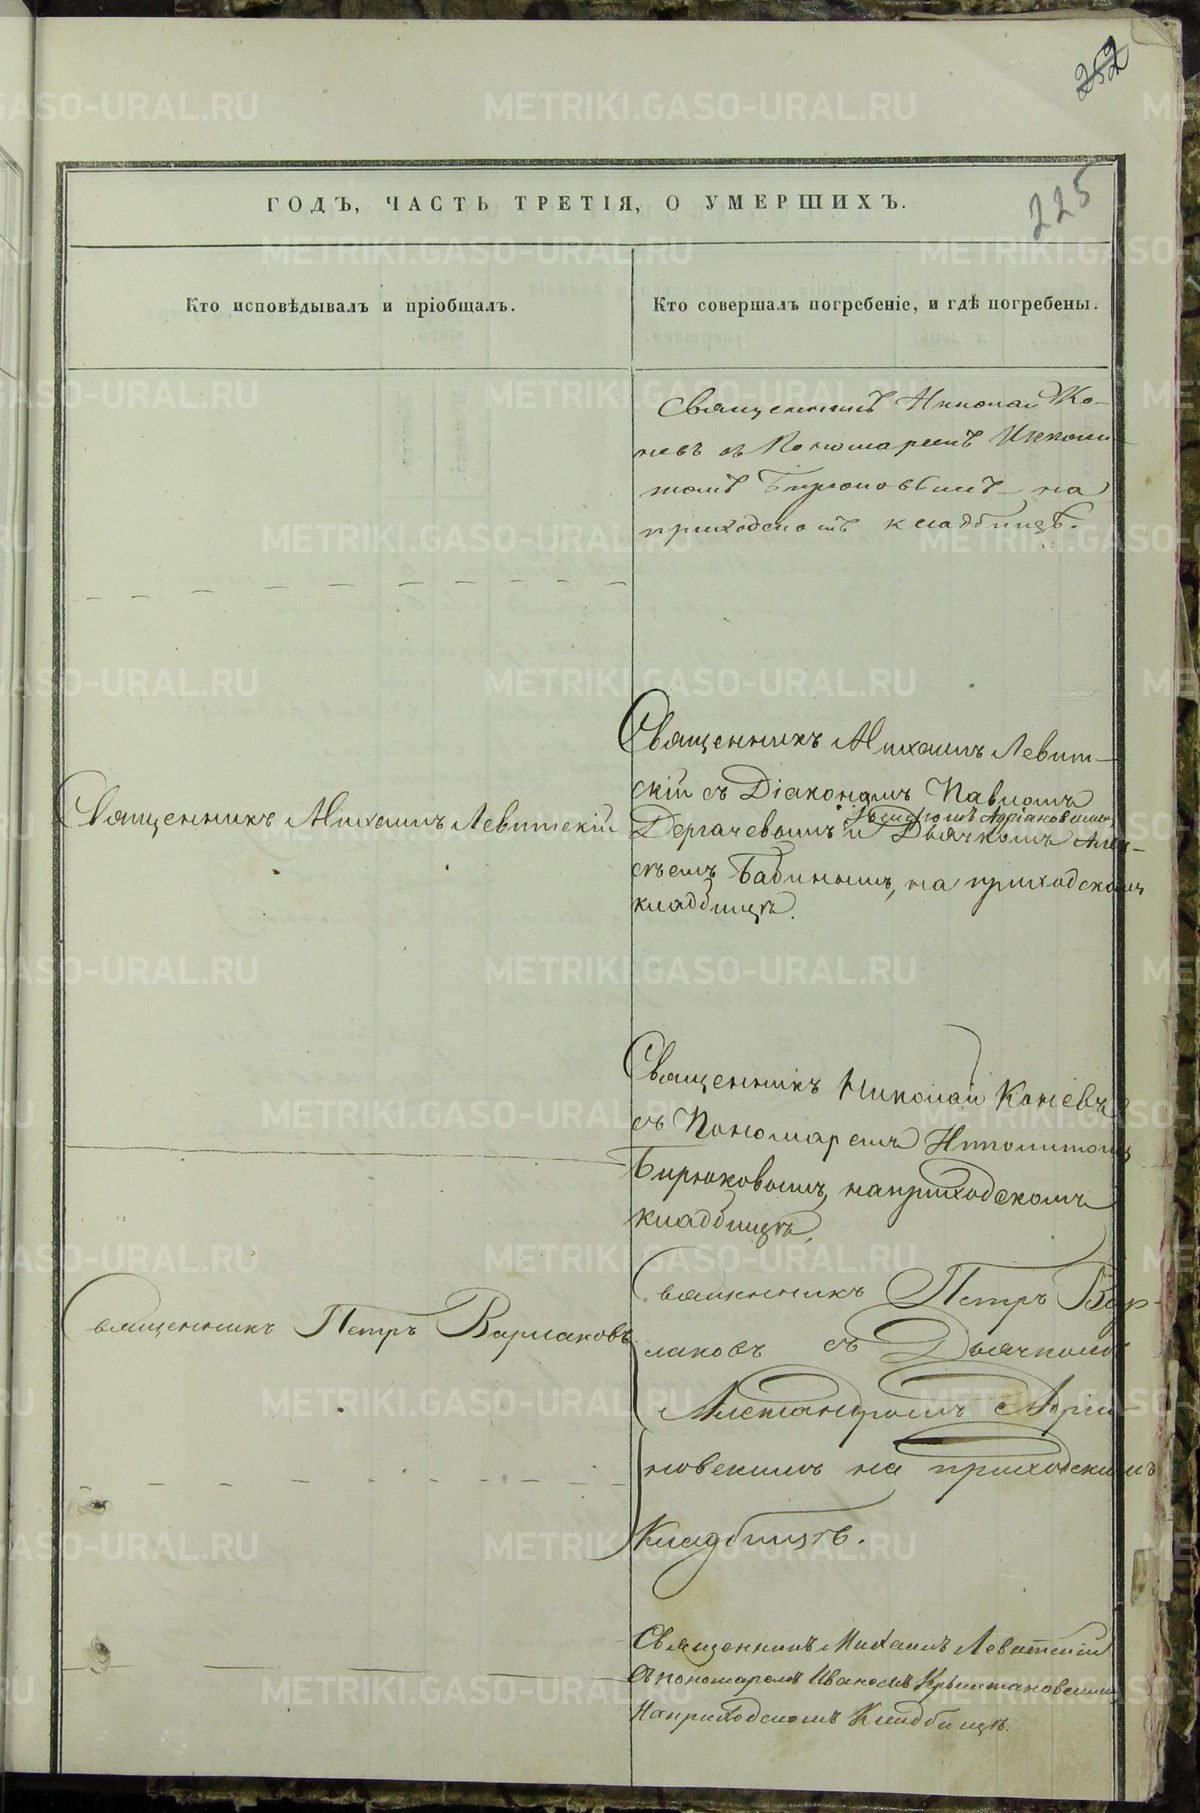 252
225
ГОДЪ, ЧАСТЬ ТРЕТІЯ, О УМЕРШИХЪ.
Кто исповѣдывалъ и пріобщалъ.
Кто совершалъ погребеніе, и гдѣ погребены.
Священникъ Николай Ко-
невъ съ Пономаремъ Ипполи
томъ Бирюковымъ на
приходскомъ кладбищѣ.
Священникъ Михаилъ Левит-
скій съ Діакономъ Павломъ
Дергачевымъ и Дьячкомъ Алек-
сѣемъ Бабинымъ, на приходскомъ
кладбищѣ.
Священникъ Михаилъ Левитскій
Священникъ Николай Коневъ
съ Пономаремъ Ипполитомъ
Бирюковымъ, на приходскомъ
кладбищѣ,
Священникъ Петръ Варлаковъ
Священникъ Петръ Вар-
лаковъ съ Дьячкомъ
Александромъ
новскимъ на приходскимъ
Кладбищѣ.
Священникъ Михаилъ Левитскій
съ пономаремъ Иваномъ
На приходскомъ Кладбищѣ.
METRIKI.GASO-URAL.RU